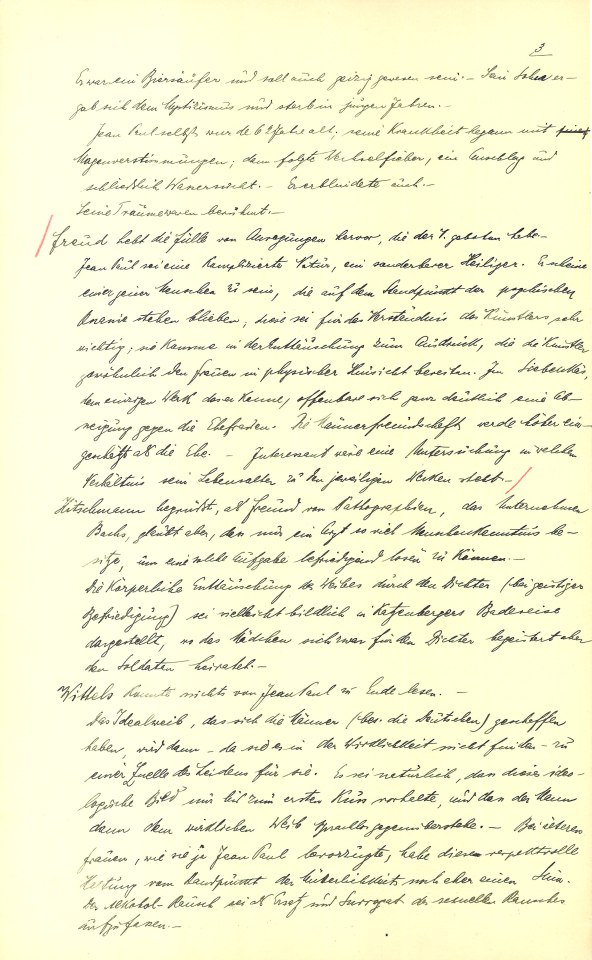 3
Er war ein Biersäufer und soll auch geizig gewesen sein.– Sein Sohn er-
gab sich dem Mystizismus und starb in jungen Jahren.–
Jean Paul selbst wurde 62 Jahre alt; seine Krankheit begann mit
Magenverstimmungen; dann folgte Wechselfieber, ein Ausschlag und
schließlich Wassersucht.– Er erblindete auch.–
Seine Träume waren berühmt.–
Freud hebt die Fülle von Anregungen hervor, die der V. geboten habe.–
Jean Paul sei eine komplizierte Natur, ein sonderbarer Heiliger. Er scheine
einer jener Menschen zu sein, die auf dem Standpunkt der psychischen
Onanie stehen blieben; dies sei für das Verständnis des Künstlers sehr
wichtig; sie komme in der Enttäuschung zum Ausdruck, die die Künstler
gewöhnlich den Frauen in physischer Hinsicht bereiten. Im Siebenkäs,
dem einzigen Werk das er kenne, offenbare sich ganz deutlich eine Ab-
neigung gegen die Ehefrauen. Die Männerfreundschaft werde höher ein-
geschätzt als die Ehe.– Interessant wäre eine Untersuchung in welchem
Verhältnis sein Lebensalter zu den jeweiligen Werken steht.–
Hitschmann begrüßt, als Freund von Pathographien, das Unternehmen
Bachs, glaubt aber, dass nur ein Arzt so viel Menschenkenntnis be-
sitze, um eine solche Aufgabe befriedigend lösen zu können.–
Die körperliche Enttäuschung des Weibes durch den Dichter (bei geistiger
Befriedigung) sei vielleicht bildlich in Katzenbergers Badereise
dargestellt, wo das Mädchen sich zwar für den Dichter begeistert aber
den Soldaten heiratet.–
Wittels konnte nichts von Jean Paul zu Ende lesen.–
Das Idealweib, das sich die Männer (bes. die Deutschen) geschaffen
haben, wird dann – da sie es in der Wirklichkeit nicht finden – zu
einer Quelle des Leidens für sie. Es sei natürlich, dass dieses ideo-
logische Bild nur bis zum ersten Kuss vorhalte, und dass der Mann
dann dem wirklichen Weib sprachlos gegenüberstehe.– Bei älteren
Frauen, wie sie ja Jean Paul bevorzugte, habe diese respektvolle
Haltung vom Standpunkt der Mütterlichkeit noch eher einen Sinn.
Der Alkohol-Rausch sei als Ersatz und Surrogat des sexuellen Rausches
aufzufassen.–